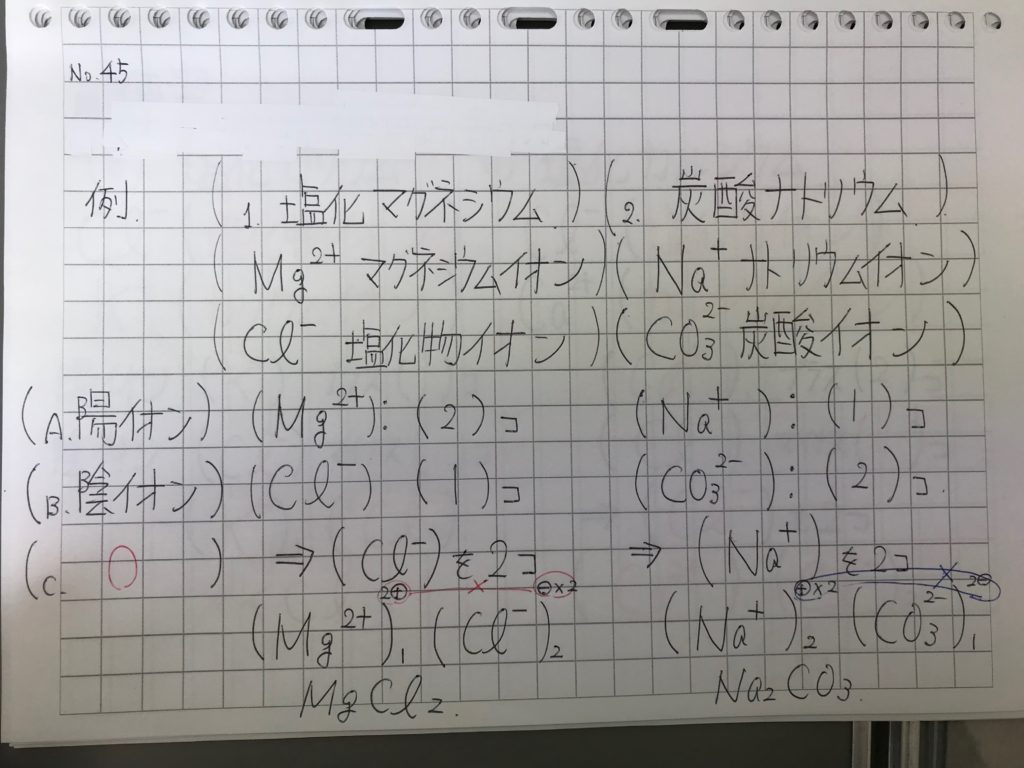 No.45
例. (1. 塩化マグネシウム) (2. 炭酸ナトリウム)
(Mg²⁺ マグネシウムイオン) (Na⁺ ナトリウムイオン)
(Cl⁻ 塩化物イオン) (CO₃²⁻ 炭酸イオン)
(A. 陽イオン) (Mg²⁺): (2)コ (Na⁺): (1)コ
(B. 陰イオン) (Cl⁻) (1)コ (CO₃²⁻): (2)コ.
(C. 〇) ⇒ (Cl⁻)を2コ ⇒ (Na⁺)を2コ
2⊕ × ⊖×2 ⊕×2 × 2⊖
(Mg²⁺)₁ (Cl⁻)₂ (Na⁺)₂ (CO₃²⁻)₁
MgCl₂. Na₂CO₃.